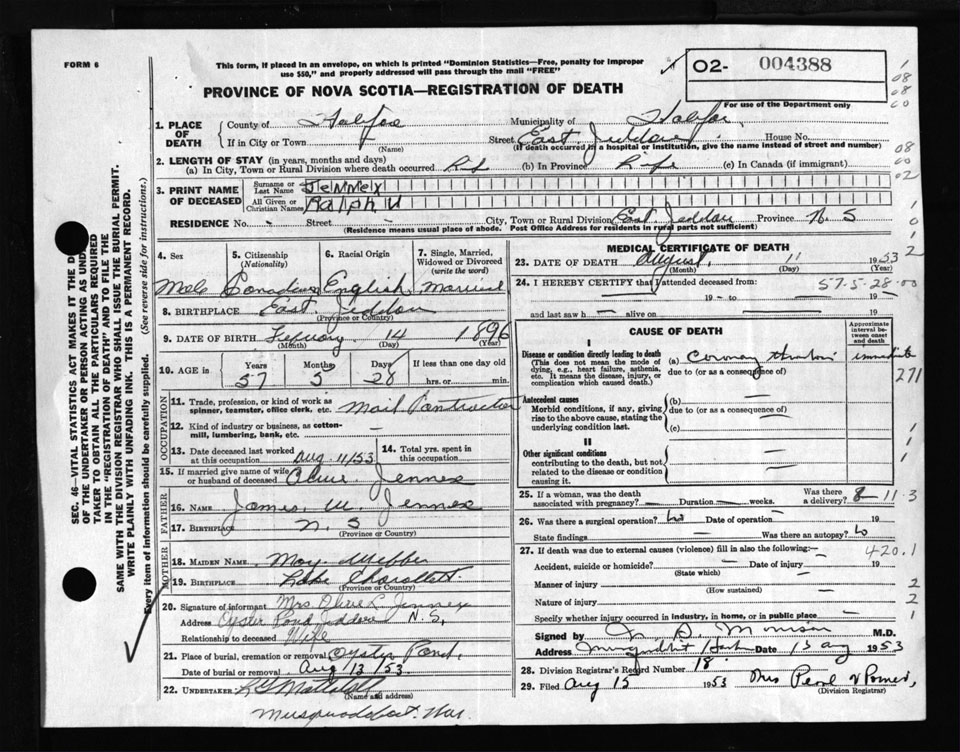 FORM 6
This form, if placed in an envelope, on which is printed "Dominion Statistics—Free, penalty for improper
use $50," and properly addressed will pass through the mail "FREE"
O2- 004388
For use of the Department only
PROVINCE OF NOVA SCOTIA—REGISTRATION OF DEATH
1. PLACE OF DEATH
County of Halifax
(Name)
Municipality of Halifax
If in City or Town
Street East Jeddore House No.
(If death occurred in a hospital or institution, give the name instead of street and number)
2. LENGTH OF STAY (in years, months and days)
(a) In City, Town or Rural Division where death occurred (b) In Province (c) In Canada (if immigrant)
3. PRINT NAME OF DECEASED
Surname or Last Name Jennex
All Given or Christian Names Ralph W
RESIDENCE No. - Street - City, Town or Rural Division East Jeddore Province N. S
(Residence means usual place of abode. Post Office Address for residents in rural parts not sufficient)
4. Sex
5. Citizenship (Nationality)
6. Racial Origin
7. Single, Married, Widowed or Divorced (write the word)
Male Canadian English Married
8. BIRTHPLACE East Jeddore
(Province or Country)
9. DATE OF BIRTH February 14 1896
(Month) (Day) (Year)
10. AGE in Years Months Days If less than one day old
57 5 28 hrs. or min.
OCCUPATION
11. Trade, profession, or kind of work as spinner, teamster, office clerk, etc. Mail Contractor
12. Kind of industry or business, as cotton-mill, lumbering, bank, etc. -
13. Date deceased last worked at this occupation Aug. 11/53
14. Total yrs. spent in this occupation
15. If married give name of wife or husband of deceased Olive Jennex
FATHER
16. Name James W. Jennex
17. Birthplace N. S
(Province or Country)
MOTHER
18. Maiden Name May Webber
19. Birthplace Lake Charlotte
(Province or Country)
20. Signature of informant Mrs Olive L. Jennex
Address Oyster Pond Jeddore N.S.
Relationship to deceased Wife
21. Place of burial, cremation or removal Oyster Pond,
Date of burial or removal Aug 13/53
22. Undertaker
(Name and address)
Musquodoboit Har.
MEDICAL CERTIFICATE OF DEATH
23. DATE OF DEATH August 11 1953
(Month) (Day) (Year)
24. I HEREBY CERTIFY that I attended deceased from: 57-5-28-00
19 - to - 19
and last saw h - alive on - 19
CAUSE OF DEATH
Approximate interval between onset and death
I
Disease or condition directly leading to death
(This does not mean the mode of dying, e.g., heart failure, asthenia, etc. It means the disease, injury, or complication which caused death.)
(a) Coronary thrombosis immediate
due to (or as a consequence of)
271
Antecedent causes
Morbid conditions, if any, giving rise to the above cause, stating the underlying condition last.
(b) -
due to (or as a consequence of)
(c) -
II
Other significant conditions
contributing to the death, but not related to the disease or condition causing it.
25. If a woman, was the death associated with pregnancy? - Duration - weeks. Was there a delivery? 8-11-3
26. Was there a surgical operation? No Date of operation - 19
State findings - Was there an autopsy? No
27. If death was due to external causes (violence) fill in also the following:- 420.1
Accident, suicide or homicide? - Date of injury - 19
(State which)
Manner of injury - 2
(How sustained)
Nature of injury - 2
Specify whether injury occurred in industry, in home, or in public place - 1
Signed by M.D.
Address Musquodoboit Harb Date 13 Aug 1953
28. Division Registrar's Record Number 18.
29. Filed Aug 15 1953 Mrs Pearl
(Division Registrar)
SEC. 46—VITAL STATISTICS ACT MAKES IT THE
OF THE UNDERTAKER OR PERSON ACTING AS
TAKER TO OBTAIN ALL THE PARTICULARS REQUIRED
IN THE "REGISTRATION OF DEATH" AND TO FILE THE
SAME WITH THE DIVISION REGISTRAR WHO SHALL ISSUE THE BURIAL PERMIT.
WRITE PLAINLY WITH UNFADING INK. THIS IS A PERMANENT RECORD.
Every item of information should be carefully supplied. (See reverse side for instructions.)